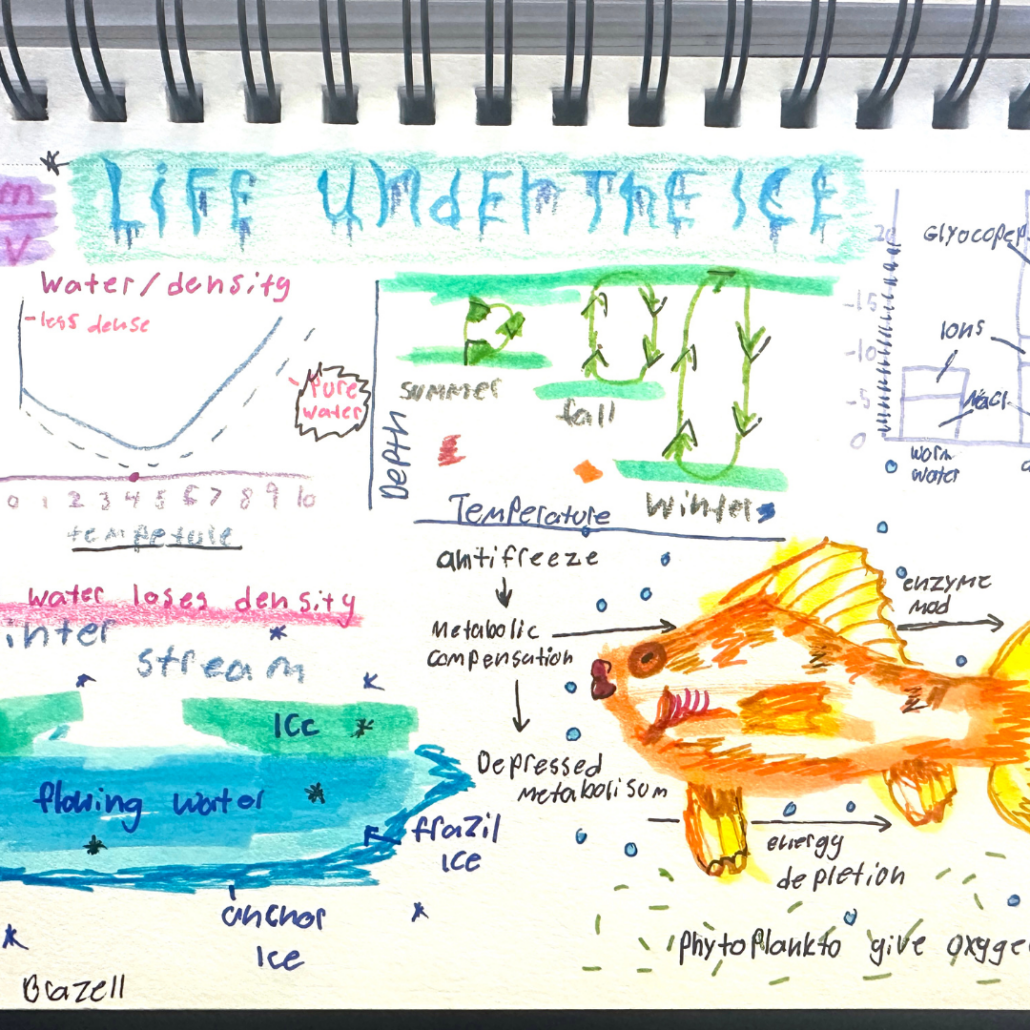 LIFE UNDER THE ICE
m
V
water/density
-less dense
Pure
water
0 1 2 3 4 5 6 7 8 9 10
tempetule
water loses density
inter
stream
Icc
flowing water
frazil
ICE
anchor
Ice
Brazell
Depth
summer
fall
Winter
Temperature
antifreeze
Metabolic
compensation
Depressed
metabolisum
enzyme
mod
energy
depletion
Phytoplankto give oxyge
20
-15
-10
-5
0
Glyocopep
Ions
NaCl
worm
water